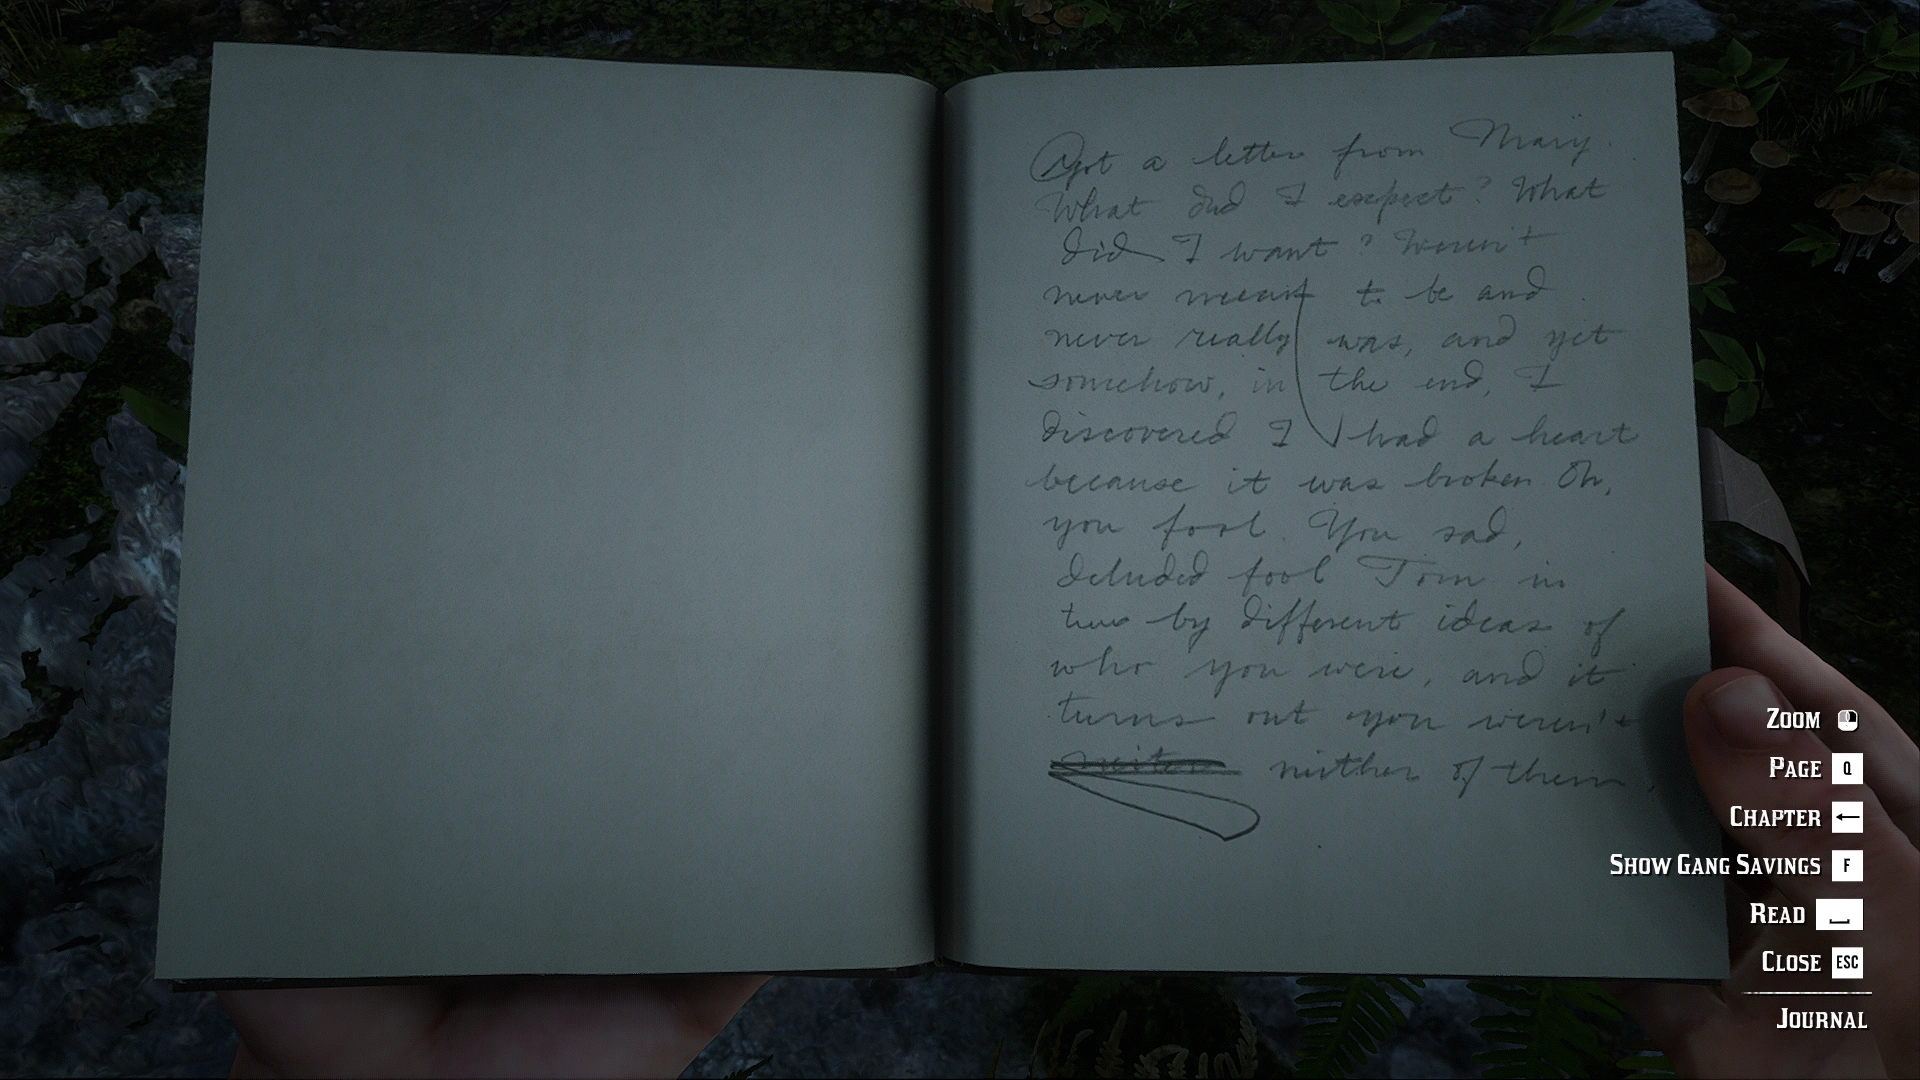 Got a letter from Mary.
What did I expect? What
did I want? Weren't
never meant to be and
never really was, and yet
somehow, in the end, I
discovered I had a heart
because it was broken Oh,
you fool. You sad,
deluded fool Torn in
two by different ideas of
who you were, and it
turns out you weren't
neither of them.
ZOOM
PAGE Q
CHAPTER ←
SHOW GANG SAVINGS F
READ
CLOSE ESC
JOURNAL